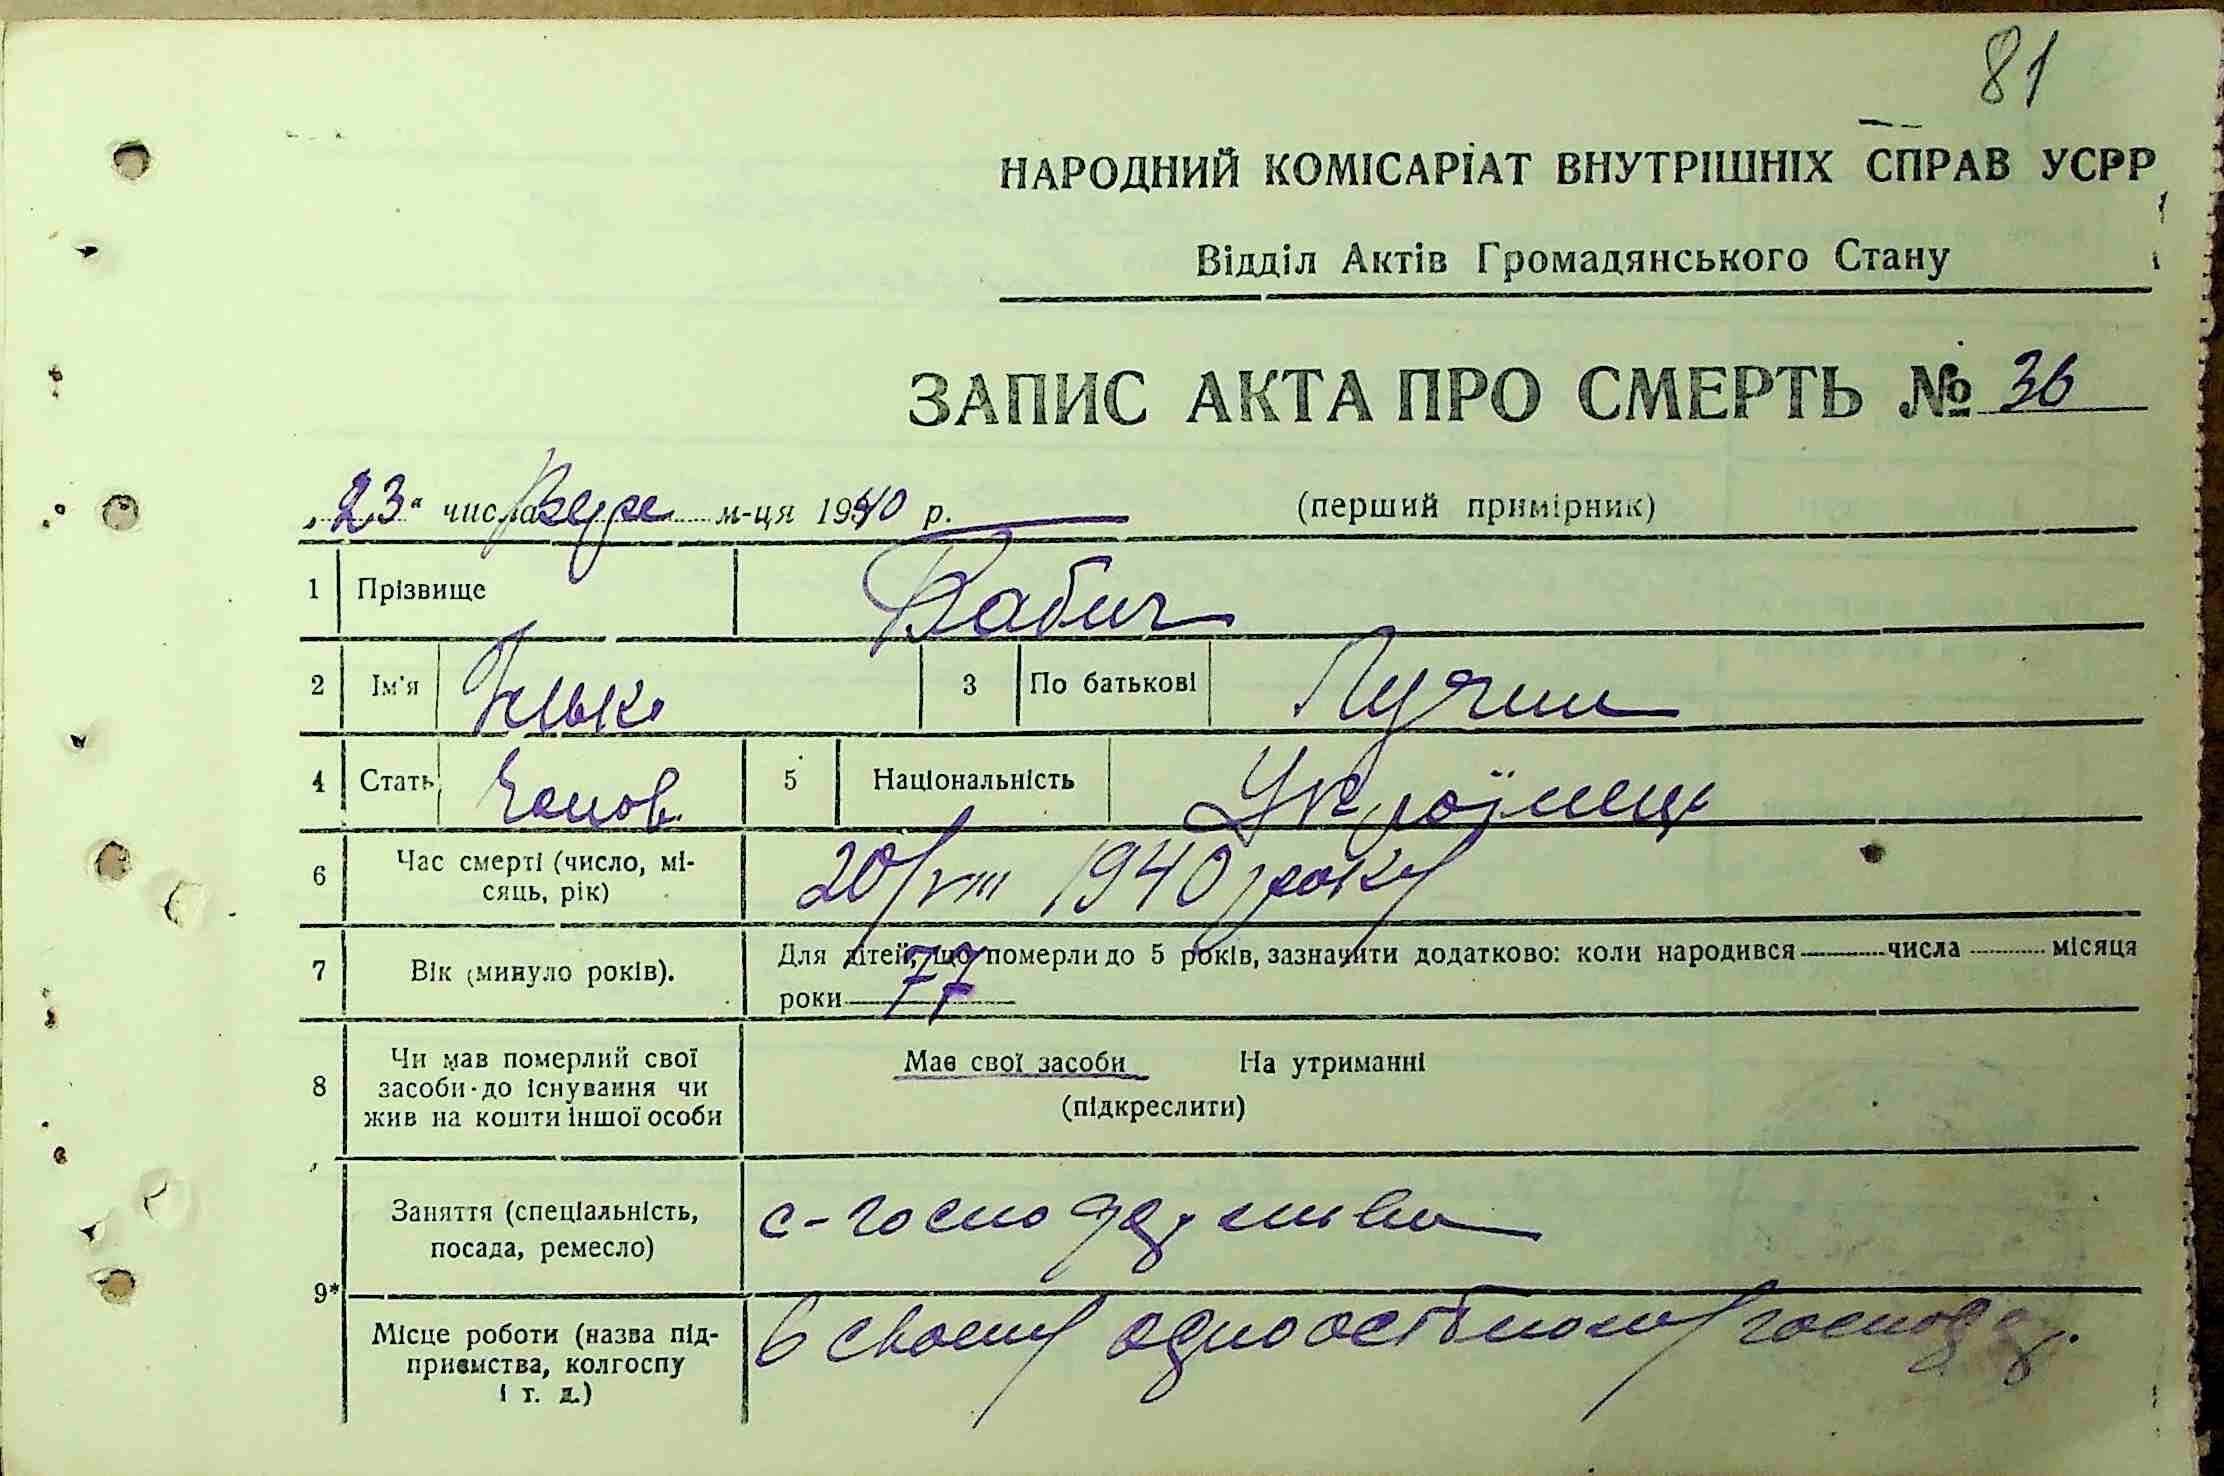 81
НАРОДНИЙ КОМІСАРІАТ ВНУТРІШНІХ СПРАВ УСРР
Відділ Актів Громадянського Стану
ЗАПИС АКТА ПРО СМЕРТЬ № 36
„23“ числа м-ця 1940 р. (перший примірник)
1 Прізвище Бабич
2 Ім'я Ілько 3 По батькові
4 Стать Чолов. 5 Національність Українець
6 Час смерті (число, мі-
сяць, рік) 20/VIII 1940 року
7 Вік (минуло років). Для дітей, що померли до 5 років, зазначити додатково: коли народився числа місяця
роки 77
8 Чи мав померлий свої
засоби до існування чи
жив на кошти іншої особи
Має свої засоби На утриманні
(підкреслити)
9*
Заняття (спеціальність,
посада, ремесло)
с-господарство
Місце роботи (назва під-
приємства, колгоспу
і т. д.)
в своему одноосібному господар.